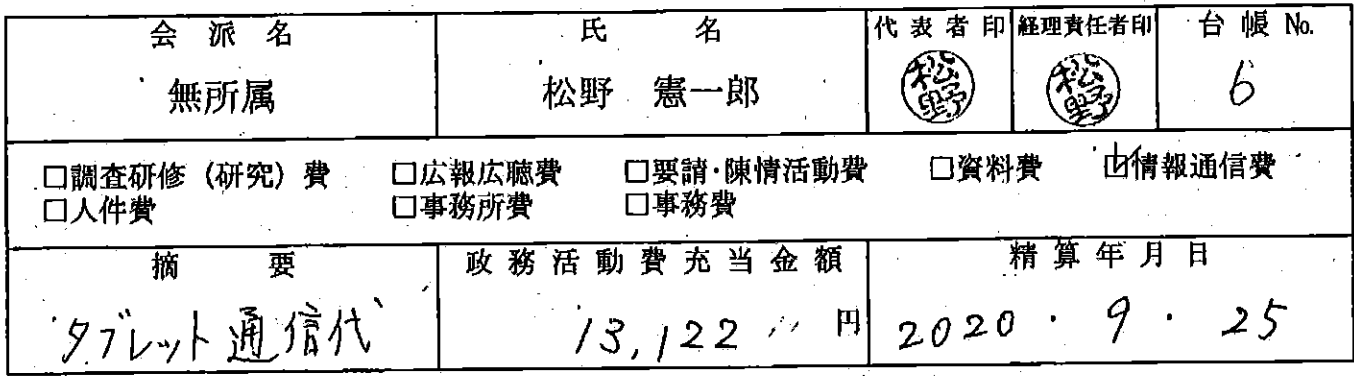 会派名 氏名 代表者印 経理責任者印 台帳 No.
無所属 松野 憲一郎 松野 松野 6
□調査研修（研究）費 □広報広聴費 □要請・陳情活動費 □資料費 ☑情報通信費
□人件費 □事務所費 □事務費
摘要 政務活動費充当金額 精算年月日
タブレット通信代 13,122 円 2020・9・25